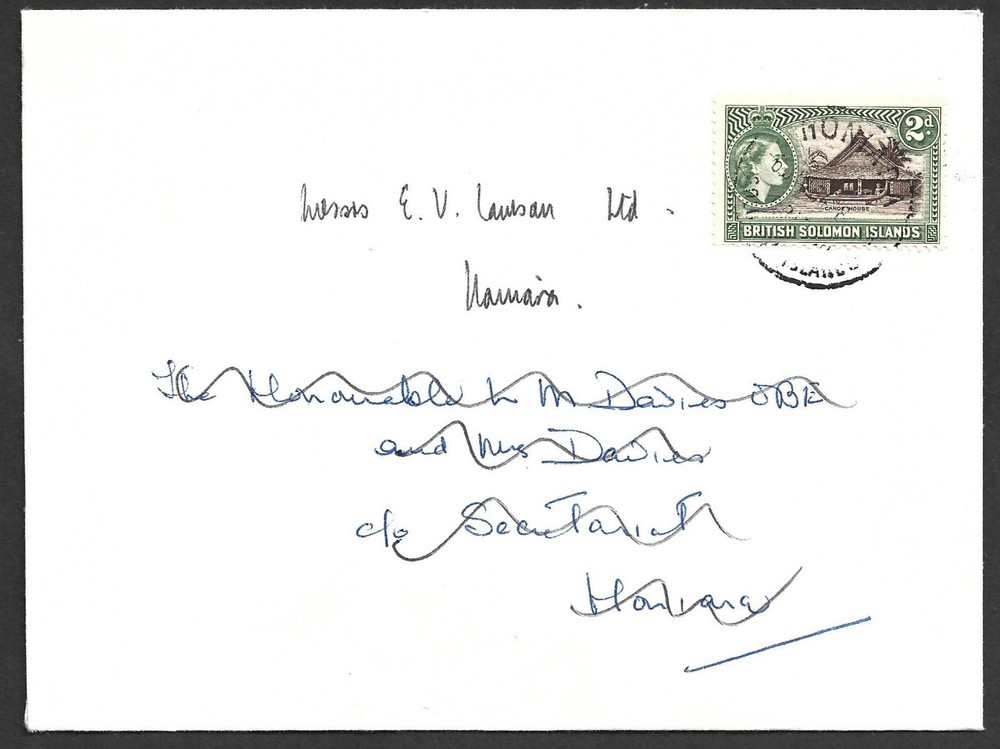 2d.
HONIARA
CANOE HOUSE
BRITISH SOLOMON ISLANDS
ISLANDS
Messrs E. V. Lawson Ltd.
The Honourable L M Davies OBE
and Mrs Davies
c/o Secretariat
Honiara